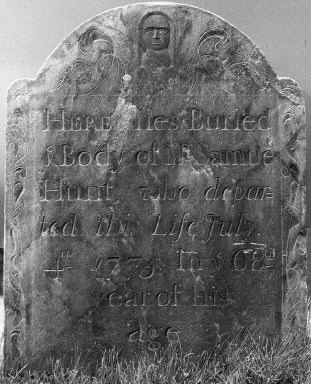 HERE lies Buried
y Body of Lt. Samuel
Hunt, who depar=
ted this Life July.
4th 1775. In y 68th
year of his
age